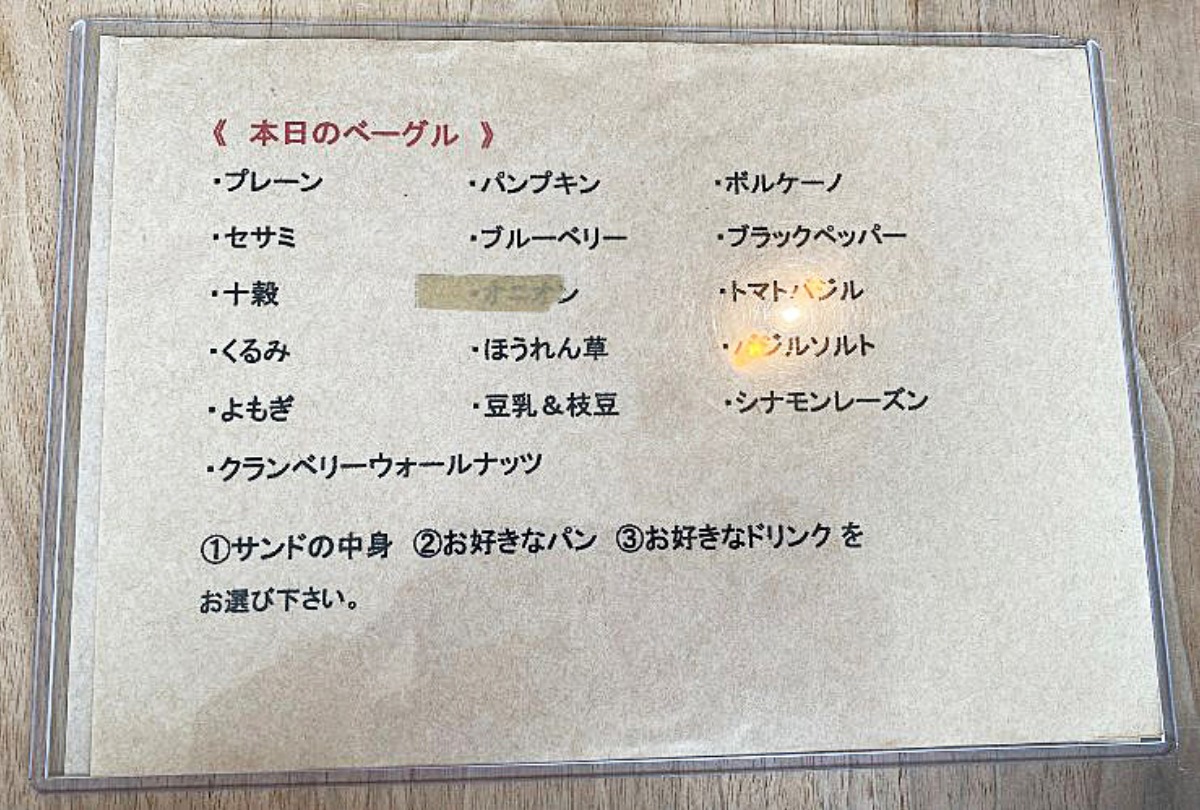 《 本日のベーグル 》
・プレーン ・パンプキン ・ボルケーノ
・セサミ ・ブルーベリー ・ブラックペッパー
・十穀 ・オニオン ・トマトバジル
・くるみ ・ほうれん草 ・バジルソルト
・よもぎ ・豆乳&枝豆 ・シナモンレーズン
・クランベリーウォールナッツ
①サンドの中身 ②お好きなパン ③お好きなドリンク を
お選び下さい。